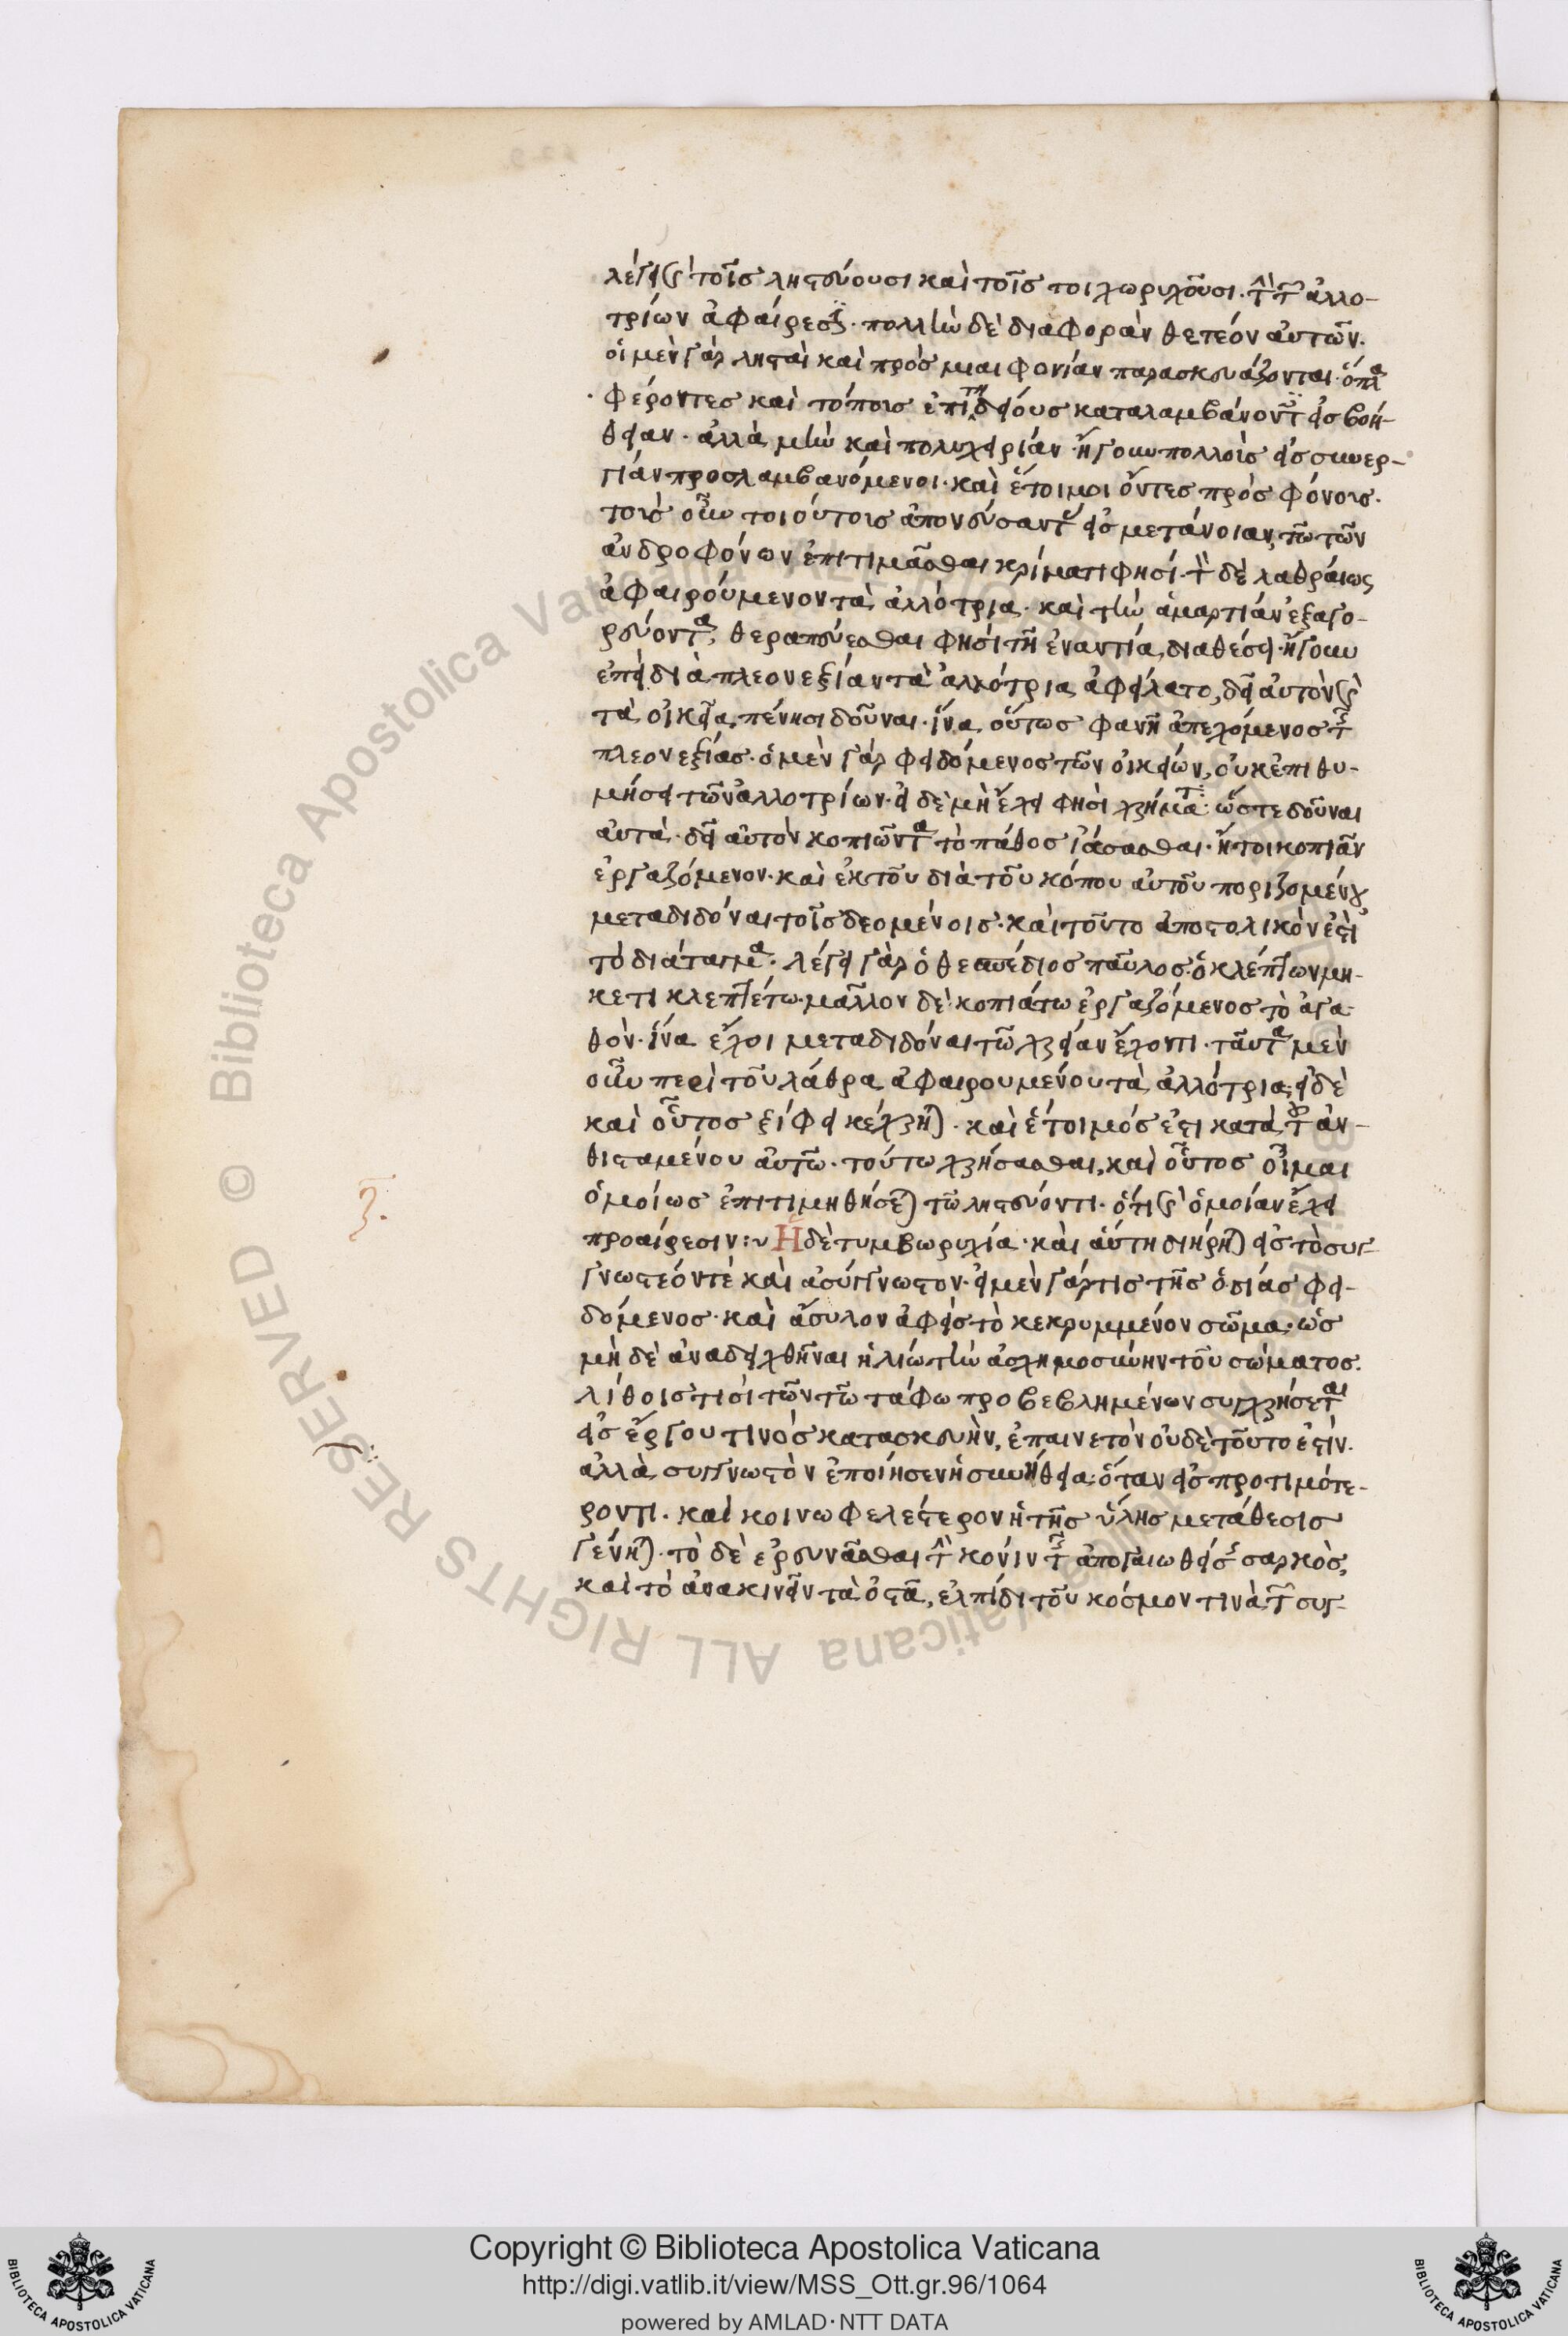 λέγει καὶ τοῖς ληστεύουσι καὶ τοῖς τοιχωρυχοῦσι· τὴν τῶν ἀλλο-
τρίων ἀφαίρεσιν· πολλὴν δὲ διαφορὰν θετέον αὐτῶν.
οἱ μὲν γὰρ λησταὶ καὶ πρὸς μιαιφονίαν παρασκευάζονται· ὅπλα
φέροντες καὶ τόποις ἐπιτηδείους καταλαμβάνοντες εἰς βοή-
θειαν· ἀλλὰ μὴν καὶ πολυχειρίαν· ἤγουν πολλοὶς εἰς συνερ-
γίαν προσλαμβανόμενοι· καὶ ἕτοιμοι ὄντες πρὸς φόνοις.
τοις οὖν τοιούτοις ἀπονεύσαντας εἰς μετάνοιαν, τῶ τῶν
ἀνδροφόνων ἐπιτιμᾶσθαι κρίματι φησί· τὸν δὲ λαθραίως
ἀφαιρούμενον τὰ ἀλλότρια· καὶ τὴν ἁμαρτίαν ἐξαγο-
ρεύοντα, θεραπεύεσθαι φησί τῆ ἐναντία διαθέσει· ἤγουν
ἐπεὶ διὰ πλεονεξίαν τὰ ἀλλότρια ἀφείλατο, δεῖ αὐτὸν καὶ
τὰ οἰκεῖα πένησι δοῦναι· ἵνα οὕτως φανῆ ἀπεχόμενος τῆς
πλεονεξίας· ὁ μὲν γὰρ φειδόμενος τῶν οἰκείων, οὐκ ἐπιθυ-
μήσει τῶν ἀλλοτρίων· εἰ δὲ μὴ ἔχει φησὶ χρήματα· ὥστε δοῦναι
αὐτὰ· δεῖ αὐτὸν κοπιῶντα τὸ πάθος ἰάσασθαι· ἤτοι κοπιᾶν
ἐργαζόμενον· καὶ ἐκ τοῦ διὰ τοῦ κόπου αὐτοῦ ποριζομένου
μεταδιδόναι τοῖς δεομένοις· καὶ τοῦτο ἀποστολικόν ἐστι
τὸ διάταγμα· λέγει γὰρ ὁ θεσπέσιος παῦλος· ὁ κλέπτων μη-
κετι κλεπτέτω· μᾶλλον δὲ κοπιάτω ἐργαζόμενος τὸ ἀγα-
θὸν· ἵνα ἔχοι μεταδιδόναι τῶ χρείαν ἔχοντι· ταῦτα μὲν
οὖν περὶ τοῦ λάθρα ἀφαιρουμένου τὰ ἀλλότρια· εἰ δὲ
καὶ οὗτος ξίφει κέχρηται· καὶ ἕτοιμός ἐστι κατὰ τοῦ ἀν-
θισταμένου αὐτῶ· τούτω χρήσασθαι, καὶ οὗτος οἶμαι
ὁμοίως ἐπιτιμηθήσεται τῶ ληστεύοντι· ὅτι καὶ ὁμοίαν ἔχει
ζ. προαίρεσιν:~ Ἡ δὲ τυμβωρυχία· καὶ αὕτη διήρηται εἰς τὸ συγ-
γνωστέόν τὲ καὶ ἀσύγγνωστον· εἰ μὲν γάρ τις τῆς ὁσίας φει-
δόμενος· καὶ ἄσυλον ἀφεὶς τὸ κεκρυμμένον σῶμα· ὡς
μὴ δὲ ἀναδειχθῆναι ἡλίω τὴν ἀσχημοσύνην τοῦ σώματος.
λίθοις τισὶ τῶν τῶ τάφω προβεβλημένων συγχρήσεται
εἰς ἔργου τινὸς κατασκευὴν, ἐπαινετὸν οὐδὲ τοῦτο ἐστίν.
ἀλλὰ συγγνωστὸν ἐποίησεν ἡ συνήθεια· ὅταν εἰς προτιμότε-
ρον τι· καὶ κοινωφελέστερον ἡ τῆς ὕλης μετάθεσις
γένηται· τὸ δὲ ἐρευνᾶσθαι τὴν κόνιν τῆς ἀπογαιωθείσης σαρκὸς,
καὶ τὸ ἀνακινεῖν τὰ ὀστᾶ, ἐλπίδι τοῦ κόσμον τινὰ τῶν συγ-
Copyright © Biblioteca Apostolica Vaticana
http://digi.vatlib.it/view/MSS_Ott.gr.96/1064
powered by AMLAD·NTT DATA